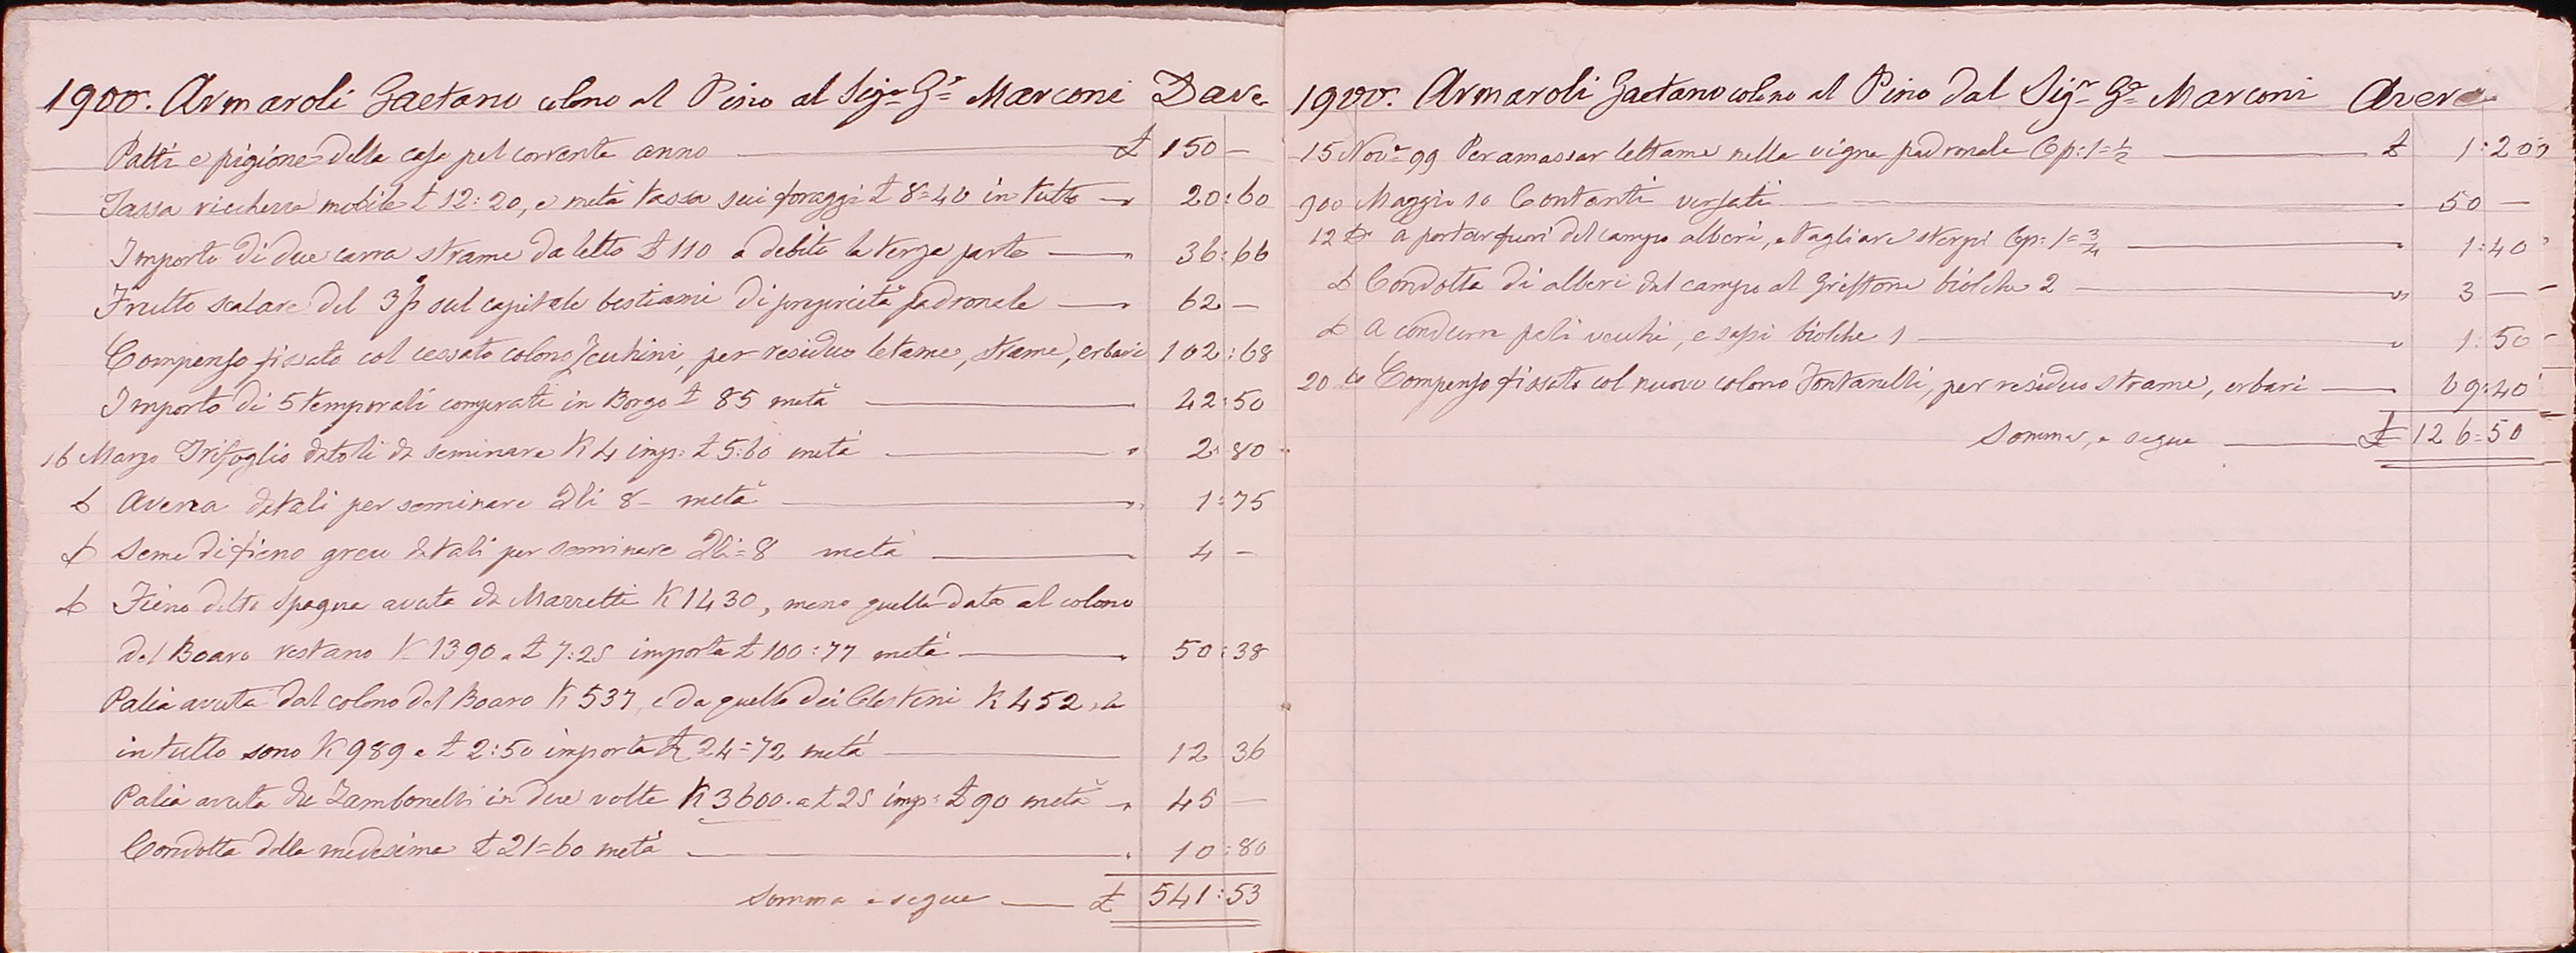 1900. Armaroli Gaetano colono al Pino al Sig.r G.e Marconi Dare
Patti e pigione della casa pel corrente anno £ 150 —
Tassa ricchezza mobile £ 12:20, e metà tassa sui foraggi £ 8=40 in tutto 20:60
Importo di due carra strame da letto £ 110 a debito la terza parte 36:66
Frutto scalare del 3 p sul capitale bestiami di proprietà padronale 62 —
Compenso fissato col cessato colono Zecchini, per residuo letame, strame, erbari 102:68
Importo di 5 temporali comprati in Borgo £ 85 metà 42:50
16 Marzo Trifoglio datoli da seminare K 4 imp: £ 5:60 metà 2:80
d Avena datali per seminare Dli 8 - metà 1:75
d Seme di fieno greco datali per seminare Dli = 8 metà 4 —
d Fieno detto Spagna avuta da Marzetti K 1430, meno quella data al colono
del Boaro restano K 1390 a £ 7:25 importa £ 100:77 metà 50:38
Palia avuta dal colono del Boaro K 537, e da quello dei Celestini K 452, che
in tutto sono K 989 a £ 2:50 importa £ 24=72 metà 12 36
Palia avuta da Zambonelli in due volte K 3600. a £ 25 imp: £ 90 metà 45 —
Condotta della medesima £ 21=60 metà 10:80
Somma e segue £ 541:53
1900. Armaroli Gaetano colono al Pino dal Sig.r G.e Marconi Avere
15 Nov.e 99 Per amassar lettame nella vigna padronale Op: 1=1/2 £ 1:20
900 Maggio 10 Contanti versati 50 —
12 d.o a portar fuori del campo alberi, e tagliare sterpi Op: 1=3/4 1:40
d Condotta di alberi dal campo al Griffone biolche 2 3 —
d A condurre pali vecchi, e sassi biolche 1 1:50
20 d Compenso fissato col nuovo colono Fontanelli, per residuo strame, erbari 69:40
Somma, e segue £ 126=50